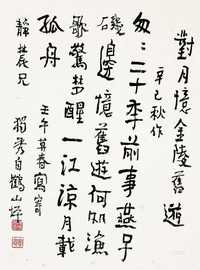 對月憶金陵舊遊
辛巳秋作
匆：二十年前事燕子
磯邊憶舊遊何處漁
歌驚夢醒一江涼月載
孤舟
靜農兄
壬午暮春寫寄
獨秀自鶴山坪